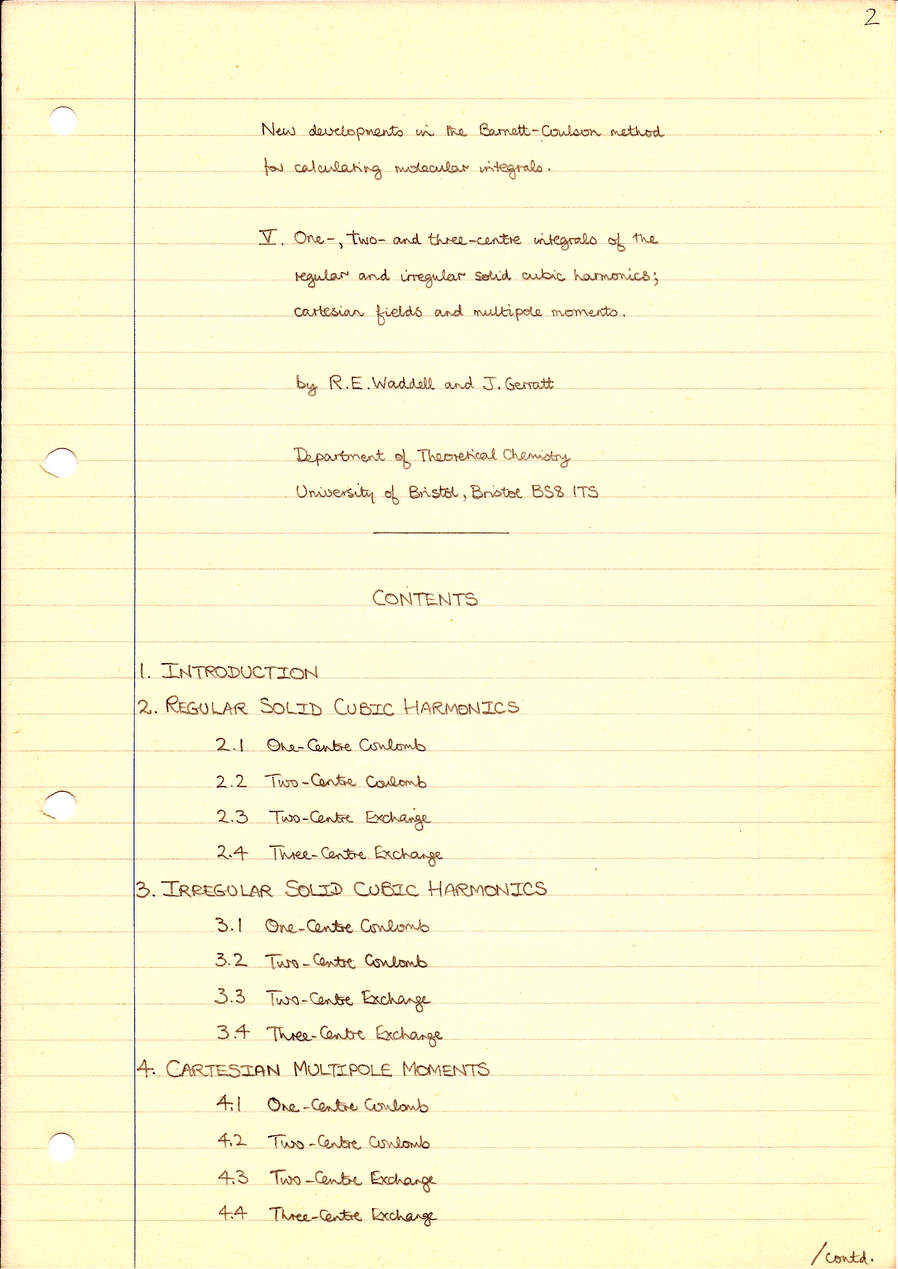 2
New developments in the Barnett-Coulson method
for calculating molecular integrals.
V. One-, two- and three-centre integrals of the
regular and irregular solid cubic harmonics;
cartesian fields and multipole moments.
by R.E. Waddell and J. Gerratt
Department of Theoretical Chemistry
University of Bristol, Bristol BS8 1TS
CONTENTS
1. INTRODUCTION
2. REGULAR SOLID CUBIC HARMONICS
2.1 One-Centre Coulomb
2.2 Two-Centre Coulomb
2.3 Two-Centre Exchange
2.4 Three-Centre Exchange
3. IRREGULAR SOLID CUBIC HARMONICS
3.1 One-Centre Coulomb
3.2 Two-Centre Coulomb
3.3 Two-Centre Exchange
3.4 Three-Centre Exchange
4. CARTESIAN MULTIPOLE MOMENTS
4.1 One-Centre Coulomb
4.2 Two-Centre Coulomb
4.3 Two-Centre Exchange
4.4 Three-Centre Exchange
/contd.